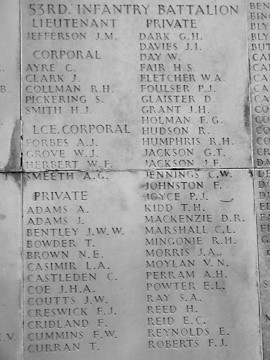 53RD. INFANTRY BATTALION
LIEUTENANT
JEFFERSON J.M.
CORPORAL
AYRE C.
CLARK J.
COLLMAN R.H.
PICKERING S.
SMITH H.J.
LCE. CORPORAL
FORBES A.J.
GROVE W.J.
HERBERT W.F.
SMEETH A.G.
PRIVATE
ADAMS A.
ADAMS J.
BENTLEY J.W.W.
BOWDER T.
BROWN N.E.
CASIMIR L.A.
CASTLEDEN C.
COE J.H.A.
COUTTS J.W.
CRESWICK F.J.
CRIDLAND F.
CUMMINS F.W.
CURRAN T.
PRIVATE
DARK G.H.
DAVIES J.I.
DAY W.
FAIR H.S.
FLETCHER W.A.
FOULSER P.J.
GLAISTER D.
GRANT J.H.
HOLMAN F.G.
HUDSON R.
HUMPHRIS R.H.
JACKSON G.T.
JACKSON J.F.
JENNINGS C.W.
JOHNSTON F.
JOYCE P.J.
KIDD T.H.
MACKENZIE D.R.
MARSHALL C.L.
MINGONIE R.H.
MORRIS J.A.
MOYLAN V.N.
PERRAM A.H.
POWTER E.L.
RAY S.A.
REED H.
REID E.C.
REYNOLDS E.
ROBERTS F.J.